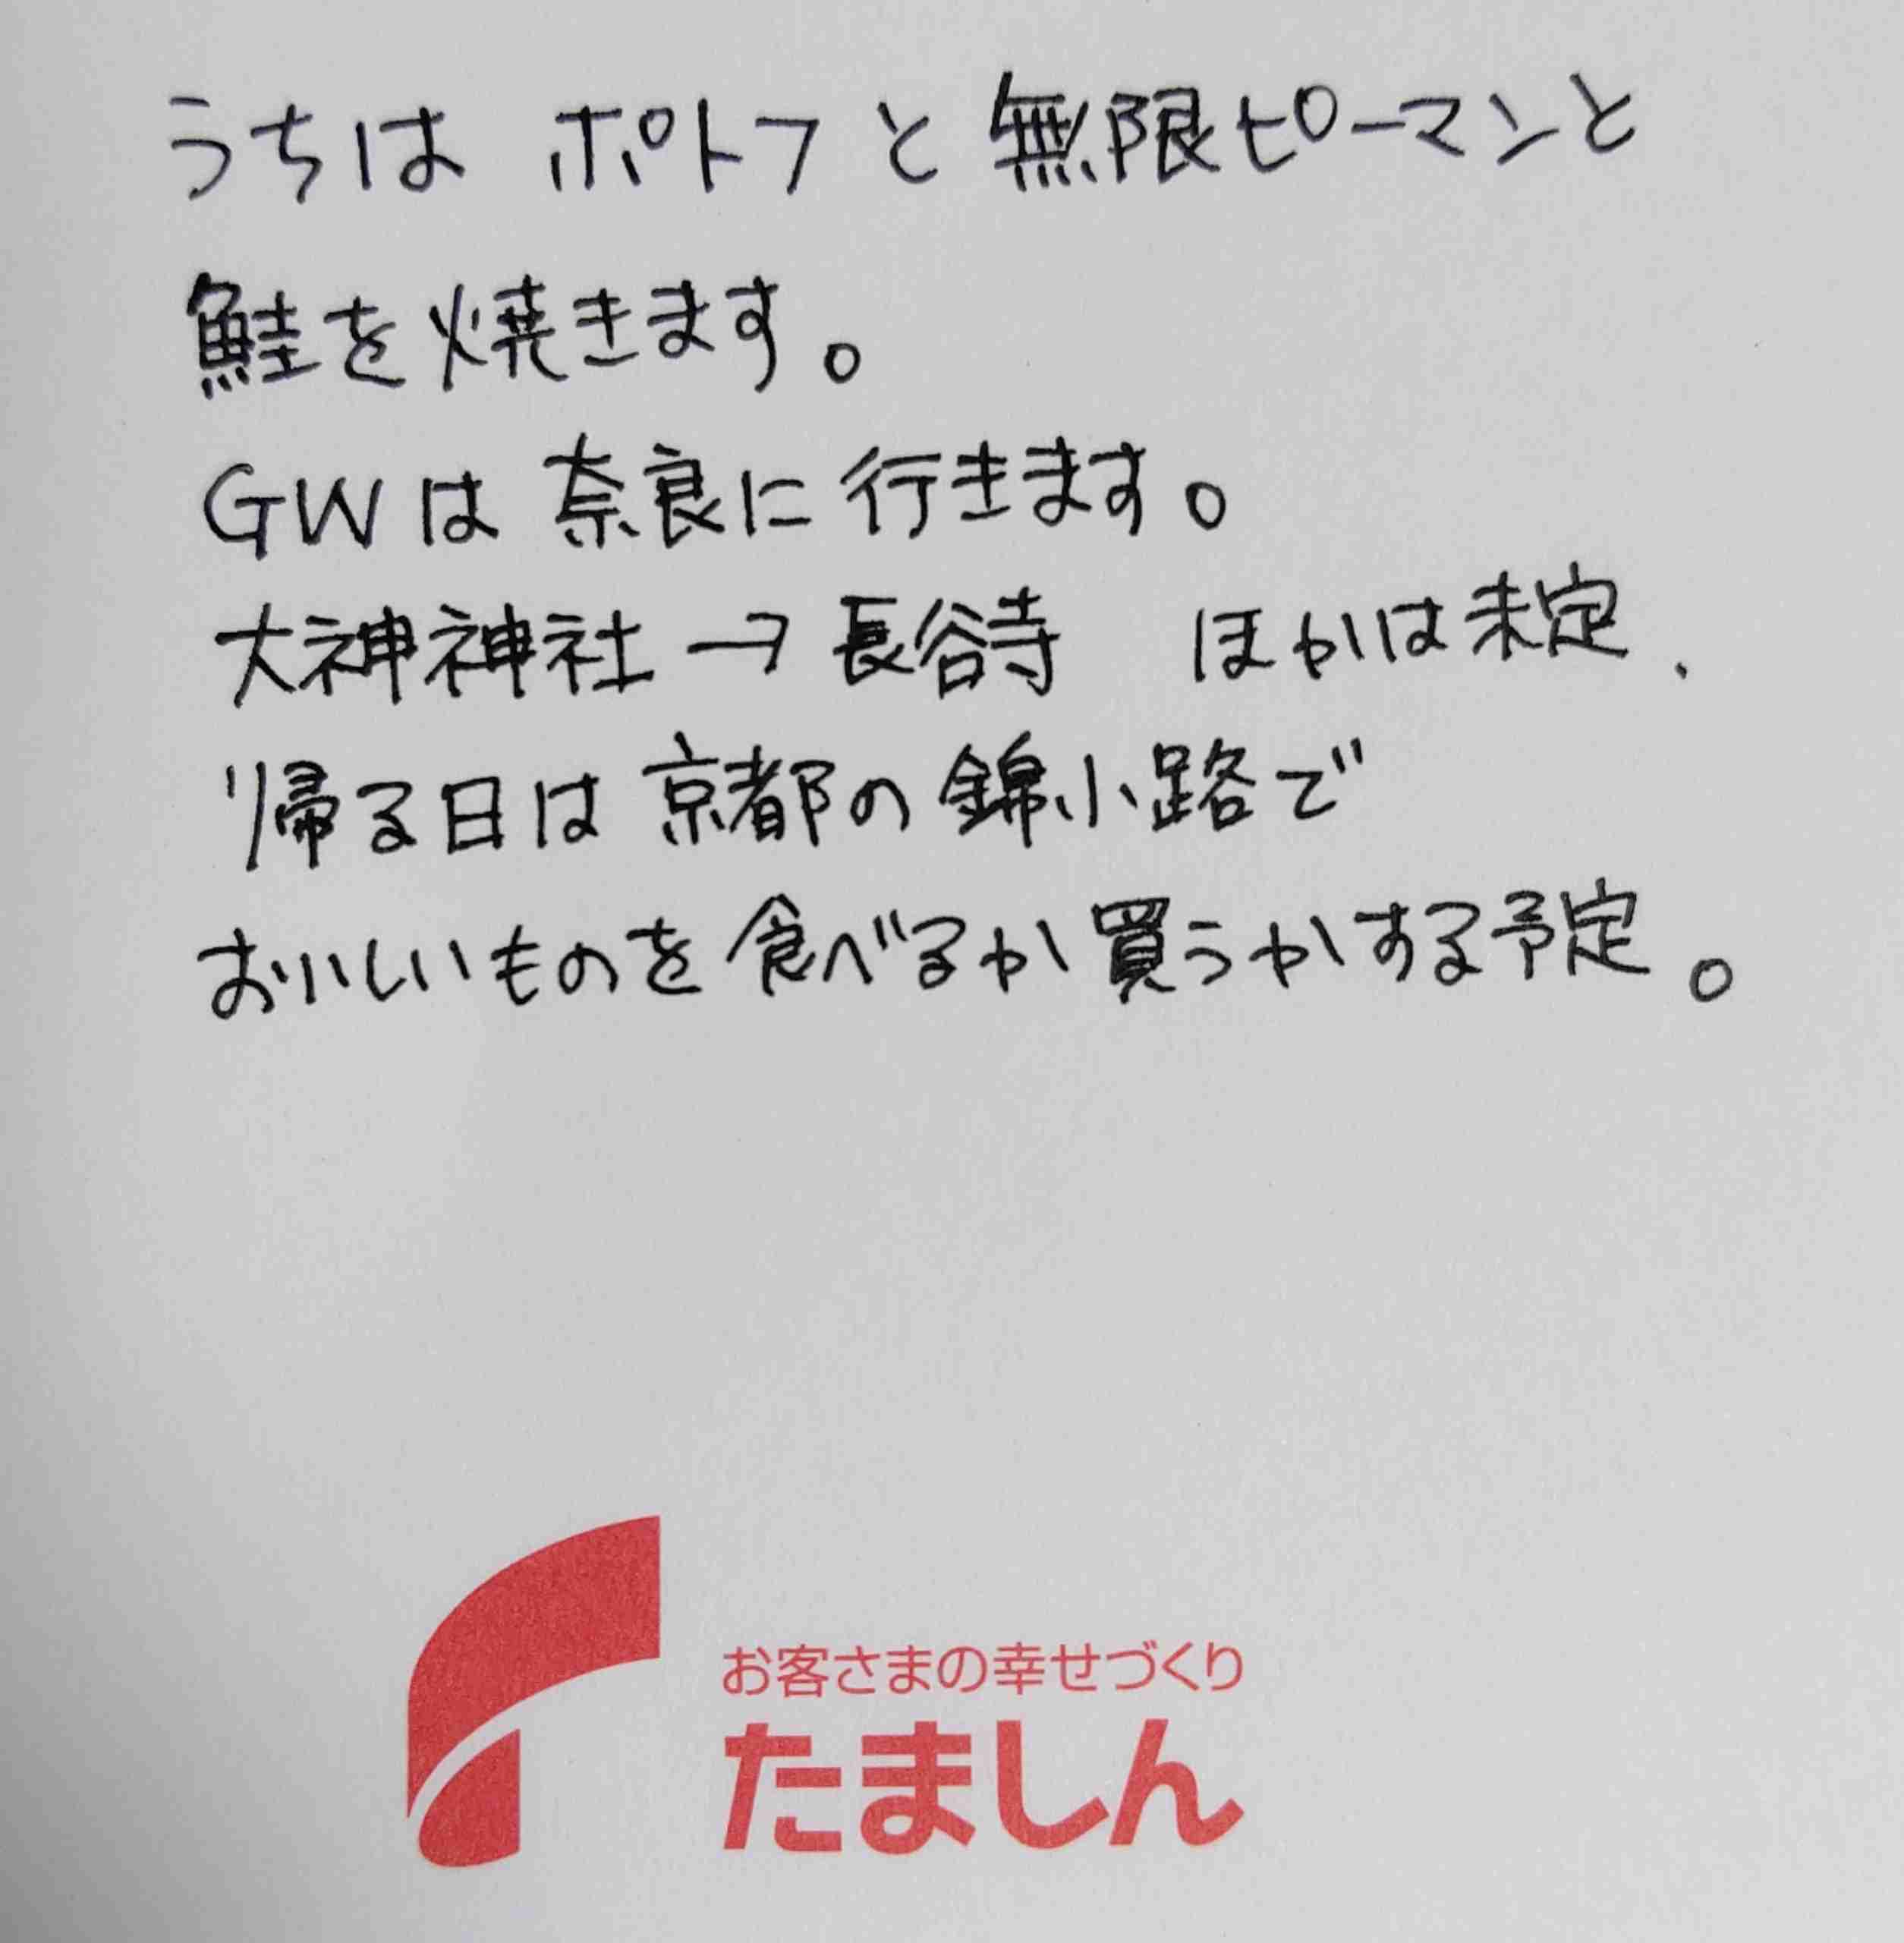 うちは ポトフと無限ピーマンと
鮭を焼きます。
GWは奈良に行きます。
大神神社→長谷寺　ほかは未定.
帰る日は京都の錦小路で
おいしいものを食べるか買うかする予定。
お客さまの幸せづくり
たましん